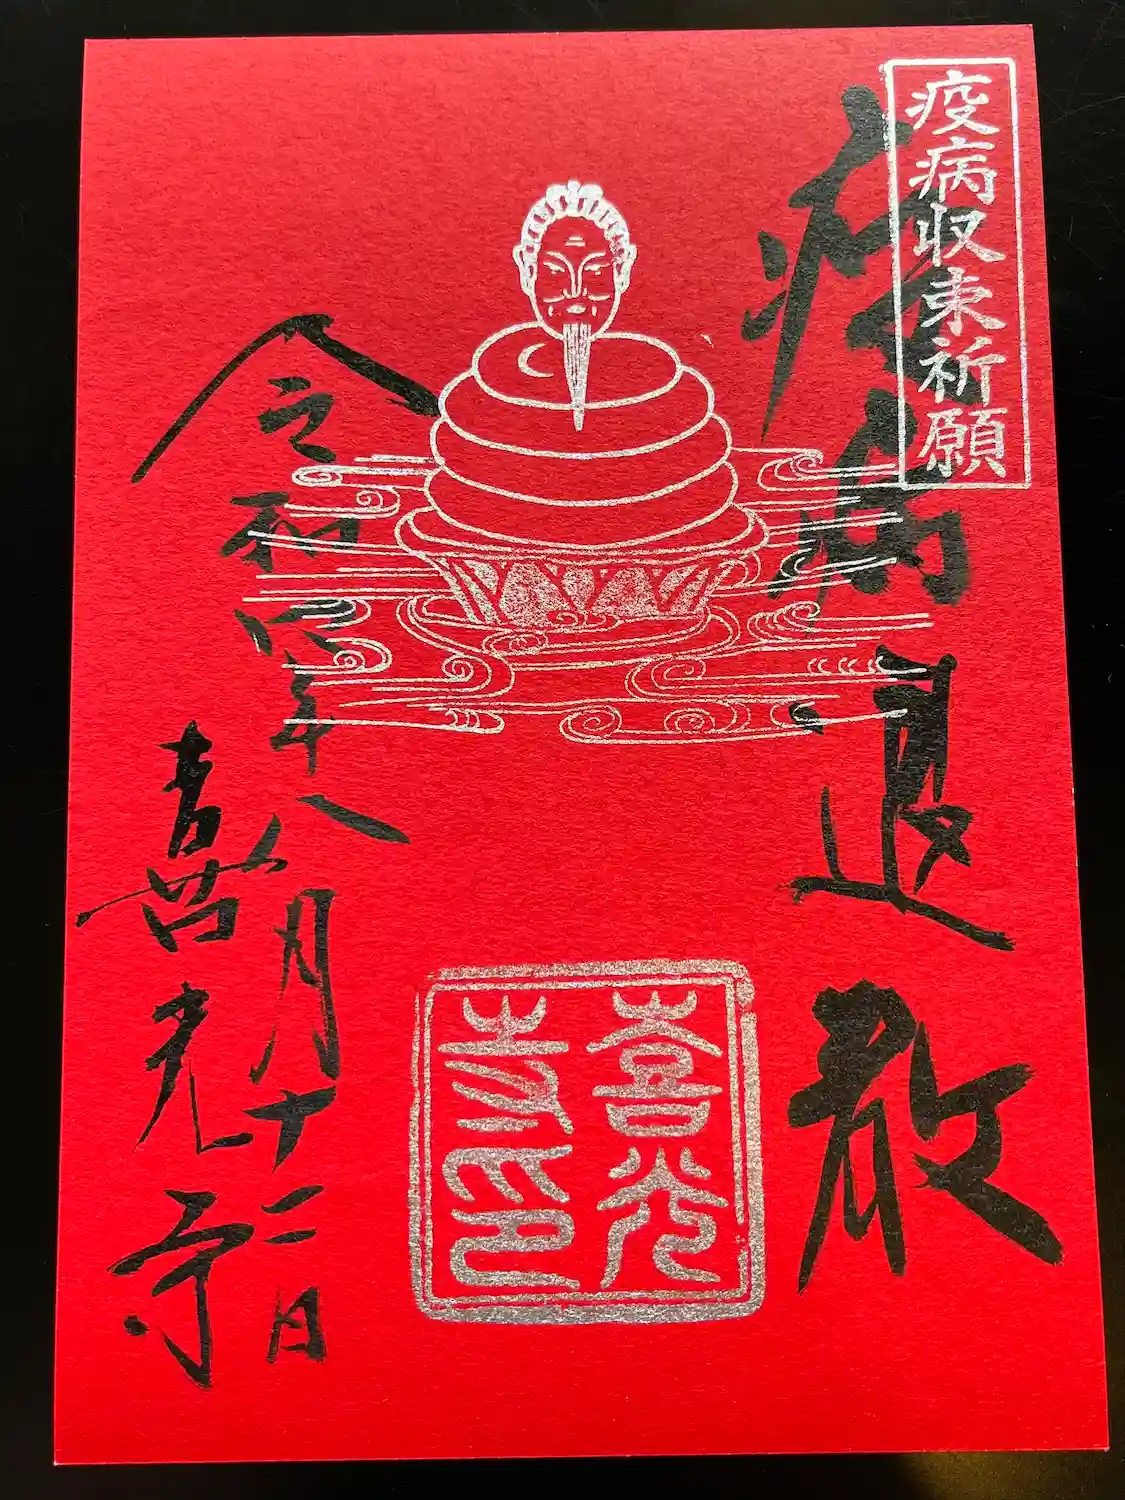 疫病収束祈願
疫病退散
令和四年八月十二日
喜光寺
喜光
寺印